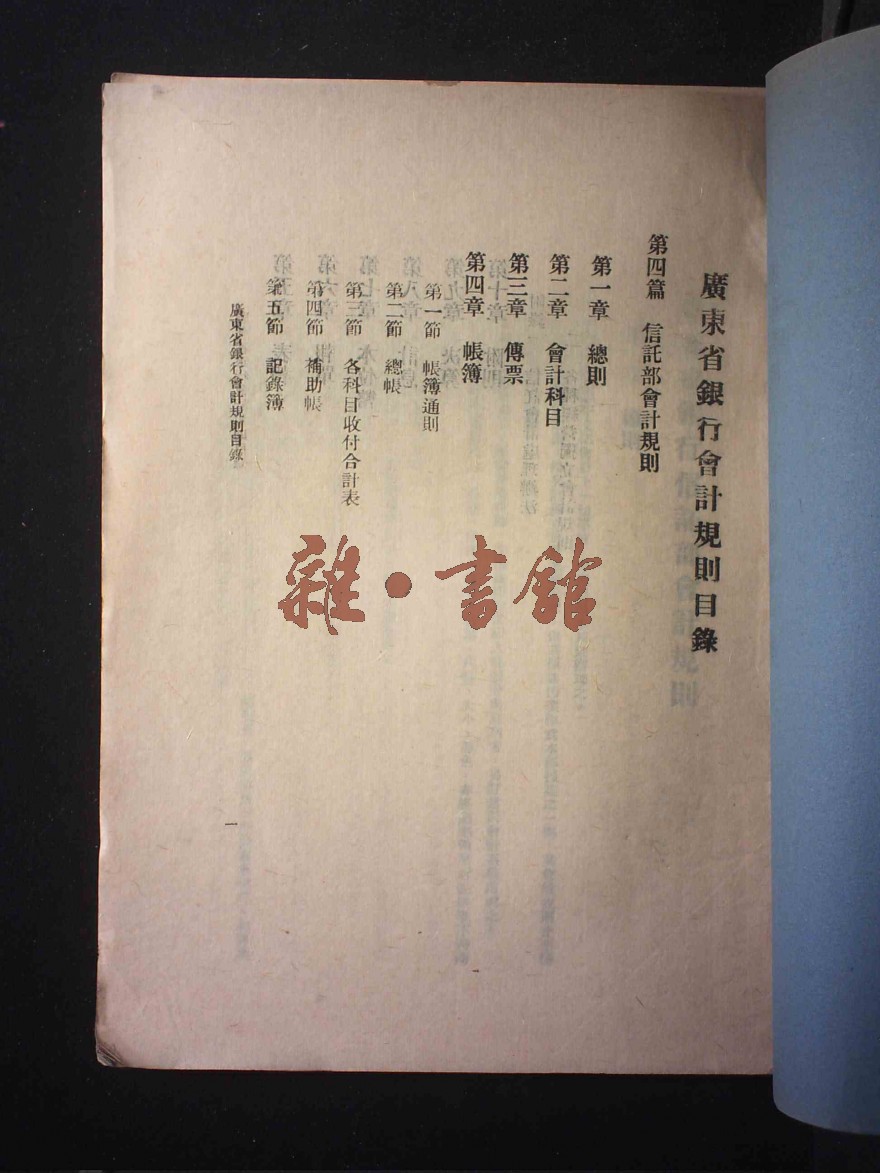 廣東省銀行會計規則目錄
第四篇　信託部會計規則
第一章　總則
第二章　會計科目
第三章　傳票
第四章　帳簿
第一節　帳簿通則
第二節　總帳
第三節　各科目收付合計表
第四節　補助帳
第五節　記錄簿
廣東省銀行會計規則目錄
一
雜·書館